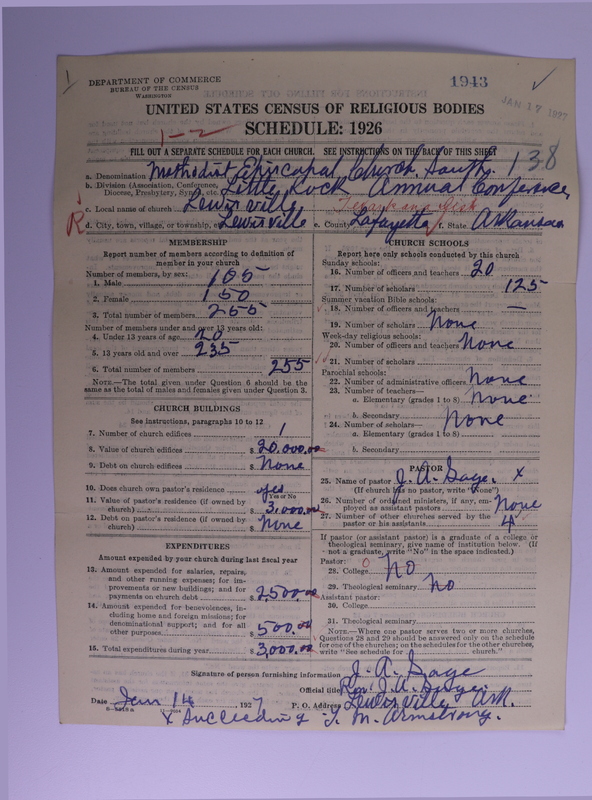 1
DEPARTMENT OF COMMERCE
BUREAU OF THE CENSUS
WASHINGTON
1943
JAN 17 1927
UNITED STATES CENSUS OF RELIGIOUS BODIES
SCHEDULE: 1926
1-2
FILL OUT A SEPARATE SCHEDULE FOR EACH CHURCH. SEE INSTRUCTIONS ON THE BACK OF THIS SHEET
138
a. Denomination Methodist Episcopal Church, South.
b. Division (Association, Conference, Diocese, Presbytery, Synod, etc.) Little Rock Annual Conference
c. Local name of church Lewisville
Texarkana Dist
R d. City, town, village, or township, etc. Lewisville e. County Lafayette f. State Arkansas
MEMBERSHIP
Report number of members according to definition of
member in your church
Number of members, by sex:
1. Male 105
2. Female 150
3. Total number of members 255
Number of members under and over 13 years old:
4. Under 13 years of age 20
5. 13 years old and over 235
6. Total number of members 255
NOTE.—The total given under Question 6 should be the
same as the total of males and females given under Question 3.
CHURCH BUILDINGS
See instructions, paragraphs 10 to 12
7. Number of church edifices 1
8. Value of church edifices $ 20,000.00
9. Debt on church edifices $ None
10. Does church own pastor's residence yes
Yes or No
11. Value of pastor's residence (if owned by
church) $ 3,000.00
12. Debt on pastor's residence (if owned by
church) $ None
EXPENDITURES
Amount expended by your church during last fiscal year
13. Amount expended for salaries, repairs,
and other running expenses; for im-
provements or new buildings; and for
payments on church debt $ 2,500.00
14. Amount expended for benevolences, in-
cluding home and foreign missions; for
denominational support; and for all
other purposes $ 500.00
15. Total expenditures during year $ 3,000.00
CHURCH SCHOOLS
Report here only schools conducted by this church
Sunday schools:
16. Number of officers and teachers 20
17. Number of scholars 125
Summer vacation Bible schools:
18. Number of officers and teachers —
19. Number of scholars None
Week-day religious schools:
20. Number of officers and teachers None
21. Number of scholars
Parochial schools:
22. Number of administrative officers None
23. Number of teachers—
a. Elementary (grades 1 to 8) None
b. Secondary
24. Number of scholars— None
a. Elementary (grades 1 to 8)
b. Secondary
PASTOR
25. Name of pastor J. A. Sage. x
(If church has no pastor, write "None")
26. Number of ordained ministers, if any, em-
ployed as assistant pastors None
27. Number of other churches served by the
pastor or his assistants 4
If pastor (or assistant pastor) is a graduate of a college or
theological seminary, give name of institution below. (If
not a graduate, write "No" in the space indicated.)
Pastor: 0
28. College No
29. Theological seminary No
Assistant pastor:
30. College
31. Theological seminary
NOTE.—Where one pastor serves two or more churches,
Questions 28 and 29 should be answered only on the schedule
for one of the churches; on the schedules for the other churches,
write "See schedule for church."
Signature of person furnishing information J. A. Sage
Official title Rev. J. A. Sage.
Date Jan 14, 1927 P. O. Address Lewisville Ark.
x Succeeding T. M. Armstrong.